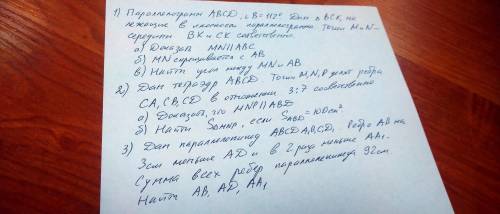 1) Параллелограмм ABCD, ∠B=112° Дан △BCK, не
лежащие в плоскости параллелограмма. Точки M и N –
середины BK и CK соотвественно.
а) Доказать MN∥ABC
б) MN скрещивается с AB
в) Найти угол между MN и AB
2) Дан тетраэдр ABCD. Точки M, N, P делят ребра
CA, CB, CD в отношении 3:7 соотвественно
а) Доказать, что MNP∥ABD
б) Найти если S_ABD = 100 см².
3) Дан параллелепипед ABCDA₁B₁C₁D₁ Ребро AB на
3см меньше AD и в 2 раза меньше AA₁.
Сумма всех ребер параллелепипеда 92см
Найти AB, AD, AA₁